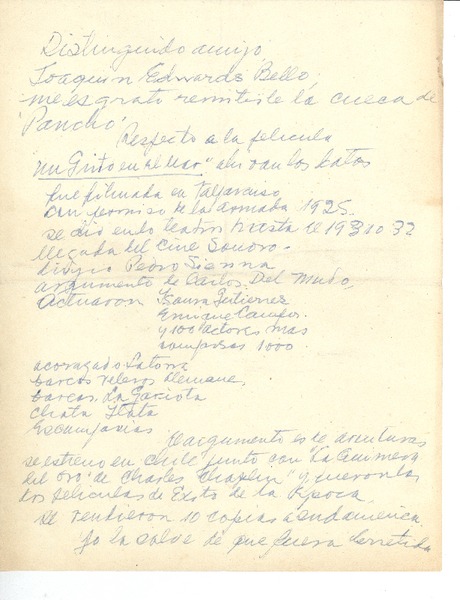 Distinguido amigo
Joaquin Edwards Bello,
me es grato remitirle la cueca de
'Pancho'.
Respecto a la pelicula
un Grito en el Mar" ahi van los datos
fue filmada en Valparaiso
con permiso de la armada 1925.
se dio en do teatros hasta el 1931 o 32
llegada del Cine Sonoro.
dirijio Pedro Sienna
argumento de Carlos Del Mudo,
Actuaron Isaura Gutierrez
Enrique Campos.
y 100 actores mas
comparsas 1000.
acorazado Latorre
barcos veleros Alemane,
barcas, La Gaviota
Chata Itata
Escampavias
El argumento es de aventuras
se estreno en chile junto con "La Quimera
del Oro" de Charles Chaplin" y fueron las
dos peliculas de Exito de la Epoca.
Se vendieron 10 copias a Sudamerica.
Yo la salve de que fuera derretida